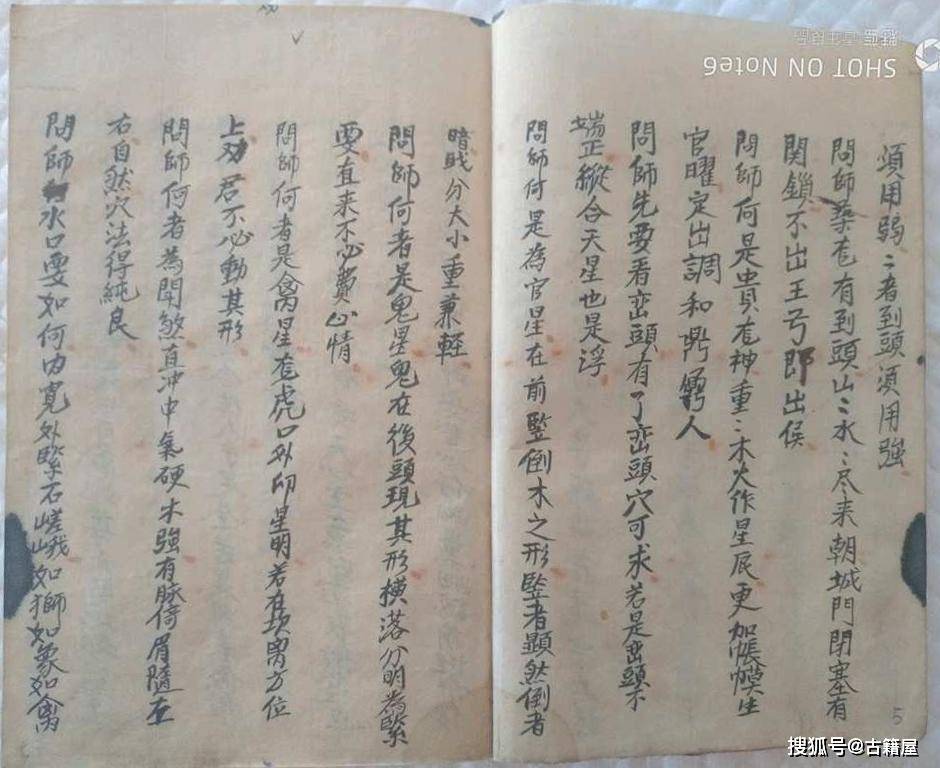 須用弱〻者到頭須用強
問師桑龙有到頭山〻水〻尽来朝城門閉塞有
関鎖不出王号即出侯
問師何是贵龙神重〻木火作星辰更加帳幙生
官曜定出調和鼎鼐人
問師先要看峦頭有了峦頭穴可求若是峦頭不
端正縱合天星也是浮
問師何是為官星在前竪倒木之形竪者顕然倒者
暗賎分大小重兼輕
問師何者是鬼星鬼在後頭現其形横落分明為緊
要直来不必費心情
問師何者是禽星龙虎口外卯星明若有坎离方位
上 君不必動其形
問師何者為聞煞直冲中氣硬木強有脉倚眉隨左
右自然穴法得純良
問師水口要如何内寛外緊石嵯峨如獅如象如禽
5
SHOT ON Note6
搜狐号@古籍屋